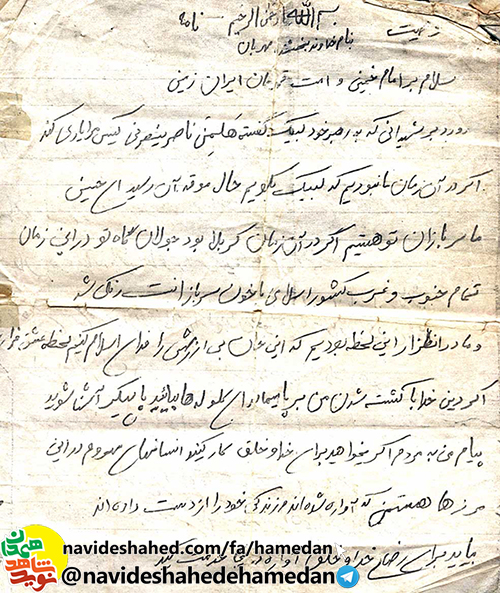 بسم الله الرحمن الرحیم نامه
وصیت
بنام خداوند بخشنده مهربان
سلام بر امام خمینی و امت قهرمان ایران زمین
درود بر شهیدانی که به رهبر خود لبیک گفتند هل من ناصر ینصرنی کیست مرا یاری کند
اگر در آن زمان ما نبودیم که لبیک بگویم حال موقع آن رسید ای حسین
ما سربازان تو هستیم اگر در آن زمان کربلا بود جولان گاه تو در این زمان
تمام جنوب و غرب کشور اسلامی با خون سربازانت رنگی شد
و ما در انتظار این لحظه بودیم که این جان بی ارزش را فدای اسلام کنیم لحظه عشق خدا
اگر دین خدا با کشته شدن من بر پا میماند ای گلوله ها بیایید با پیکر آشنا شوید
پیام من به مردم اگر بخواهید برای خدا و خلق کار کنید انسانهای محروم در این
مرزها هستنی که آواره شده اند و زندگی خود را از دست داده اند
بیاید برای رضای خدا و خلق آواره
navideshahed.com/fa/hamedan
@navideshahedehamedan
نوید شاهد همدان